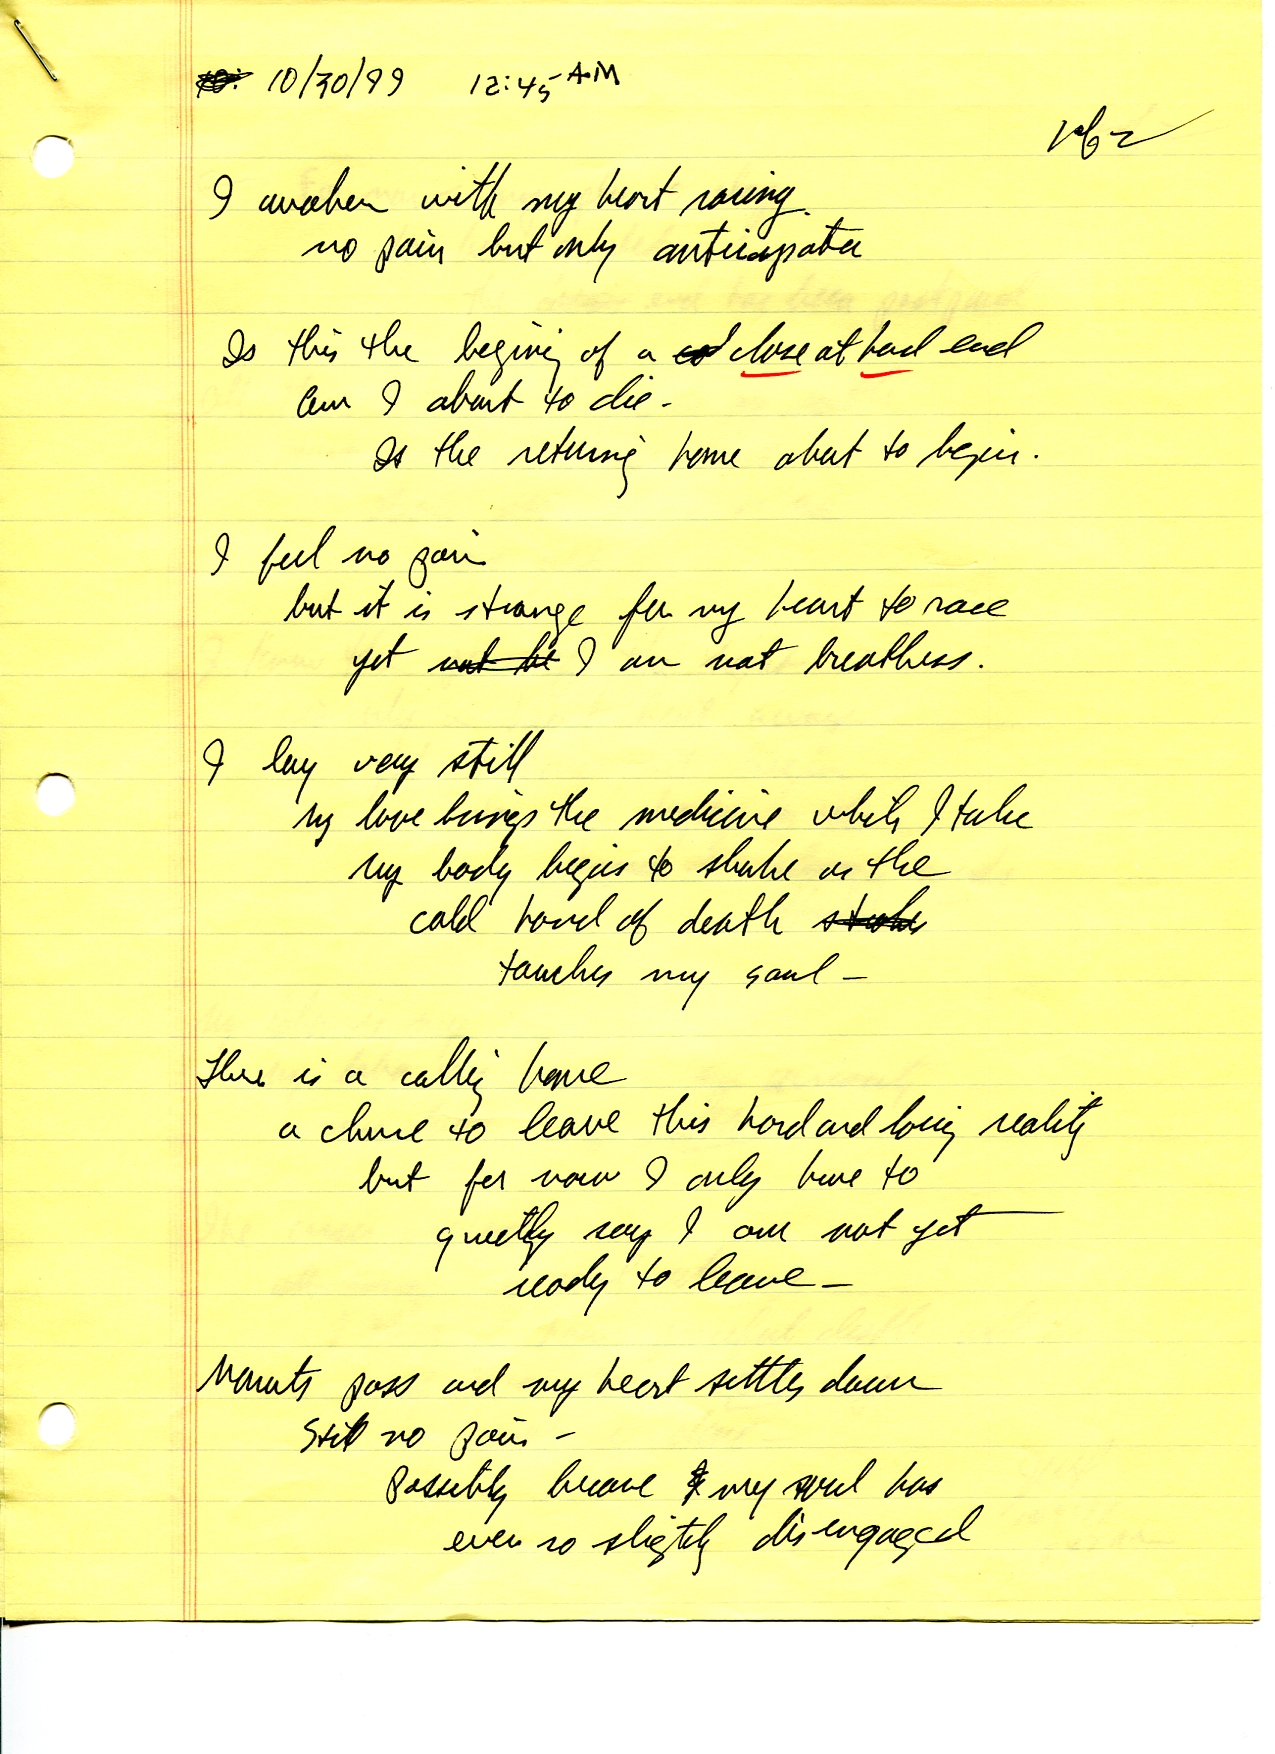 10/30/99 12:45 AM
1 of 2
I awaken with my heart racing.
no pain but only anticapation
Is this the begining of a close at hand end
am I about to die -
Is the returning home about to begin.
I feel no pain
but it is strange for my heart to race
yet not be I am not breathless.
I lay very still
my love brings the medicine which I take
my body begins to shake as the
cold hand of death strokes
touches my soul -
There is a calling home
a chance to leave this hard and loving reality
but for now I only have to
quietly say I am not yet
ready to leave -
Moments pass and my heart settles down
Still no pain -
Possibly because my soul has
ever so slightly disengaged